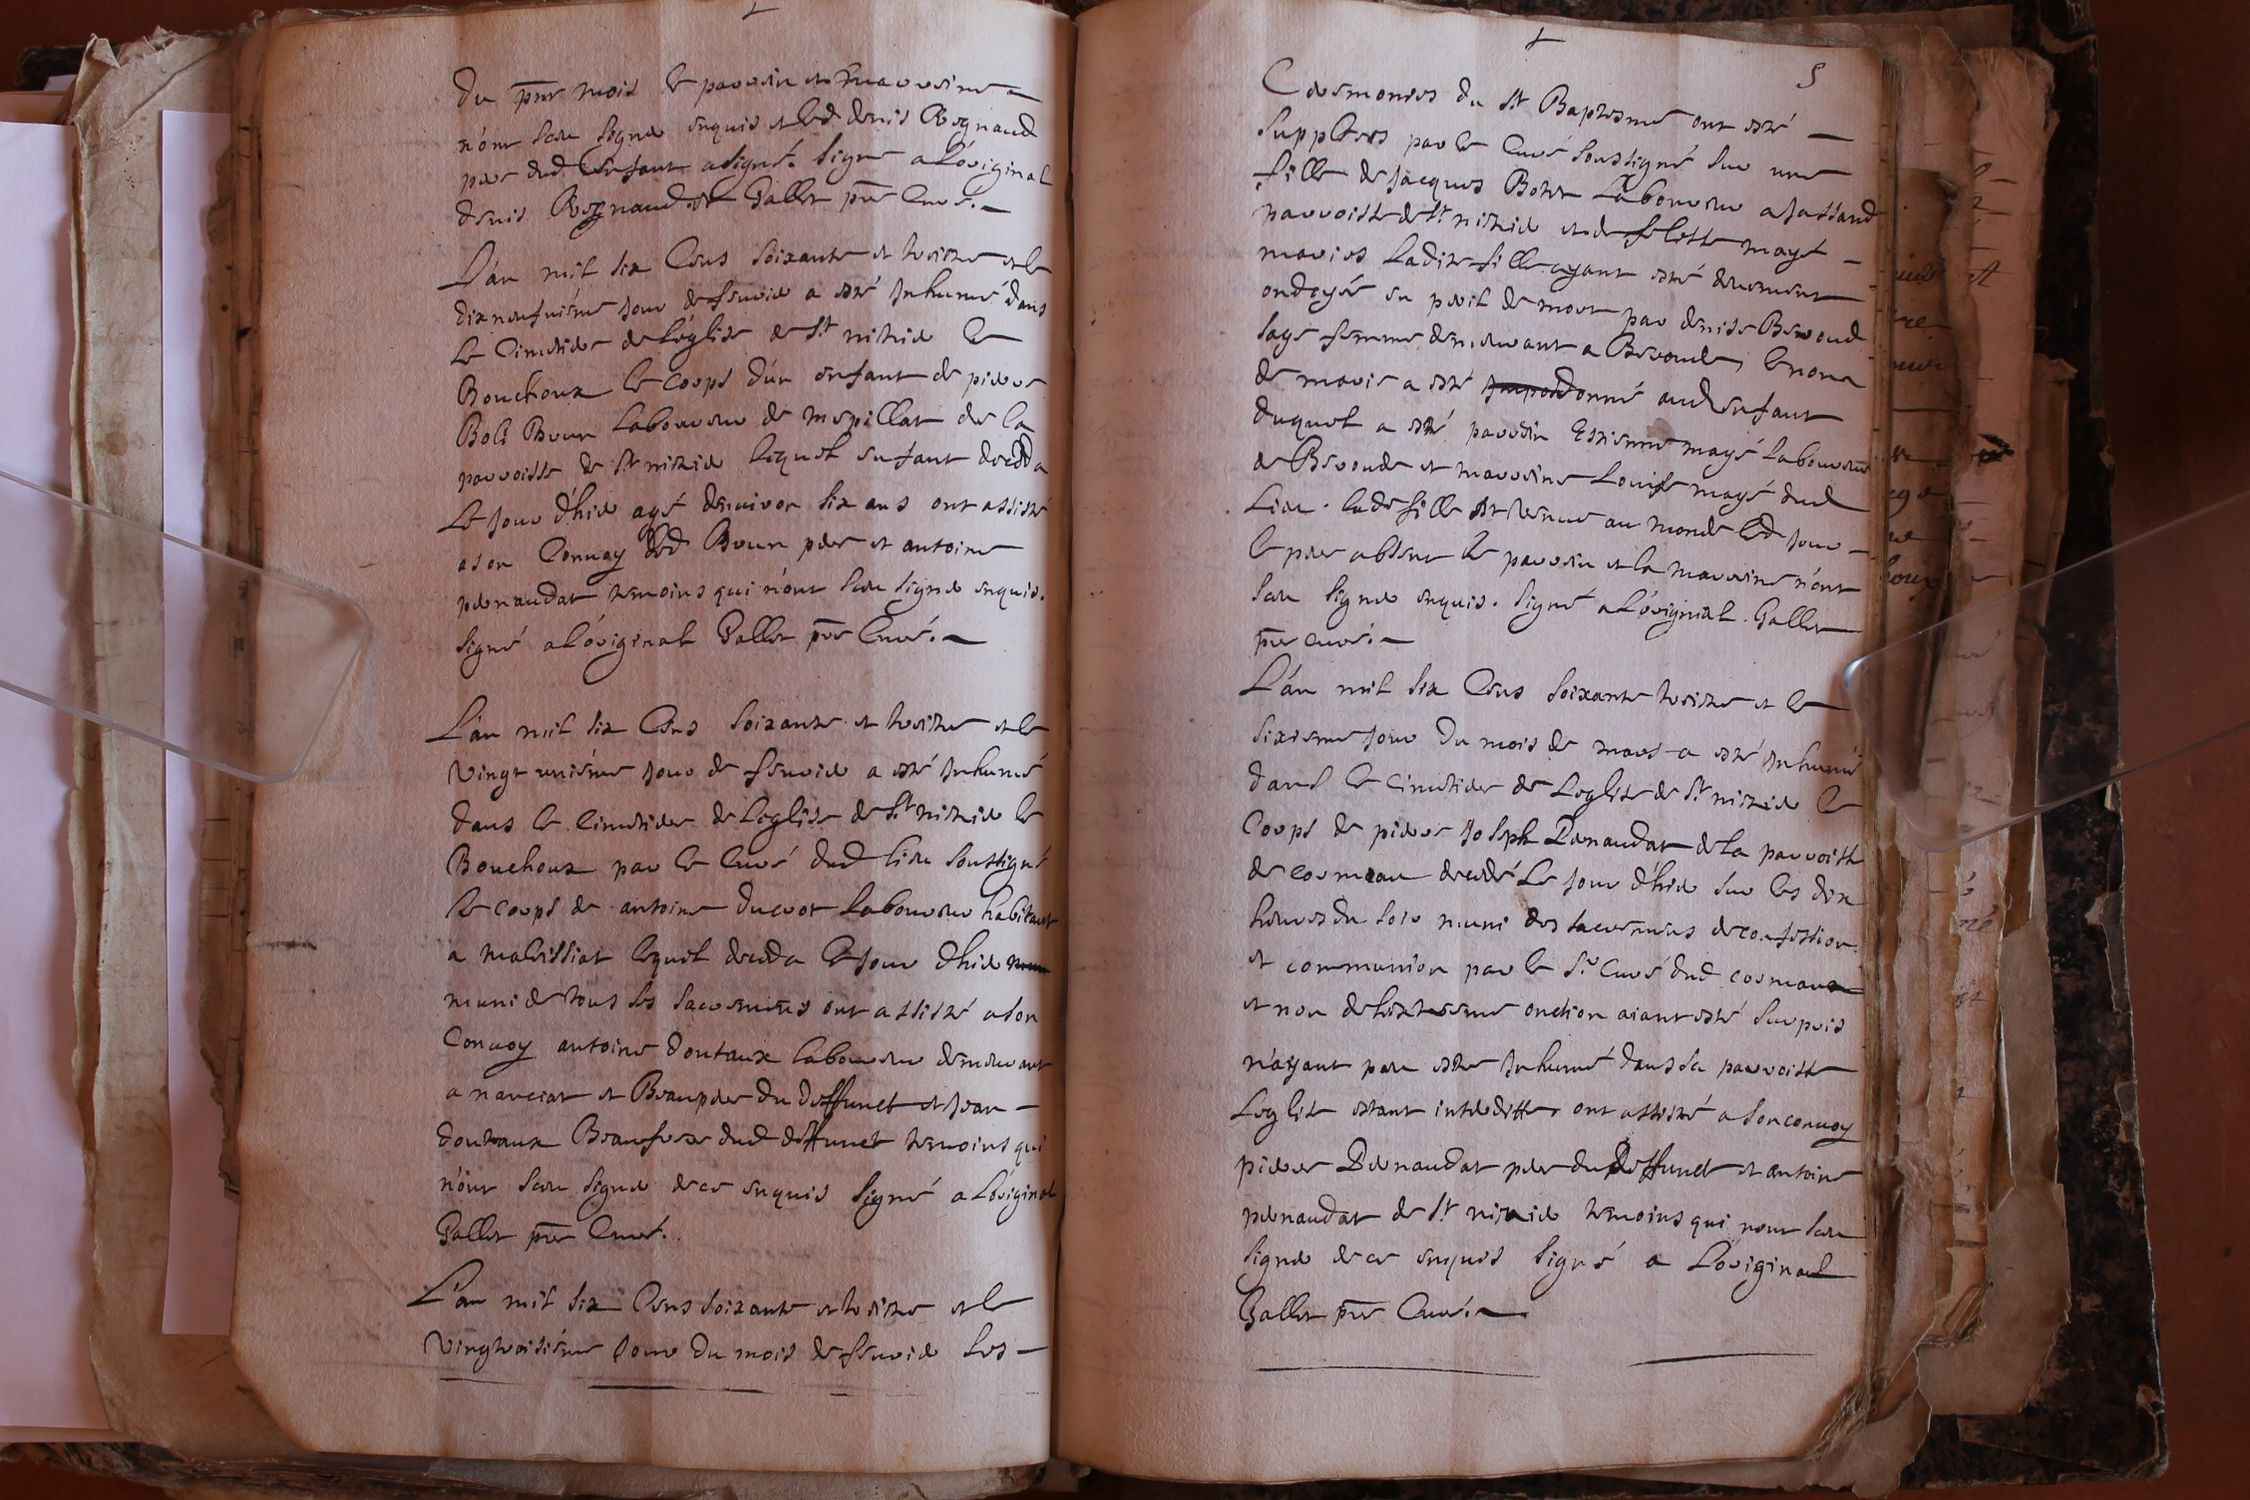 du pnt mois le parrain et marraine
n'ont sceu signer enquis et led denis Regnaud
pere dud Enfant a signé. Signé a L'original
denis Regnaud et Gallet pre Curé.
L'an mil six Cens soixante et treize et le
dixneufuiéme jour de feurier a esté Inhumé dans
le Cimetiere de L'eglise de St nizier le
Bouchoux le corps d'un enfant de pierre
Boli Brun Laboureur de mepillat de la
parroisse de St nizier lequel enfant deceda
Le jour d'hier agé denuiron six ans ont assisté
a son Conuoy led Brun pere et antoine
penaudat temoins qui n'ont sceu signer enquis.
signé a L'original Gallet pre Curé.
L'an mil six Cens soixante et treize et le
vingt uniéme jour de feurier a esté Inhumé
dans le Cimetiere de Leglise de St nizier le
Bouchoux par le Curé dud lieu soussigné
le corps de antoine ducrot Laboureur habitant
a malaissiat lequel deceda le jour d'hier
muni de tous les sacremens ont assisté a son
Conuoy antoine doutaux laboureur demeurant
a nanciat et Beaupere du deffunct et jean
doutaux Beaufrere dud deffunct temoins qui
n'ont sceu signer de ce enquis signé a L'original
Gallet pre Curé.
L'an mil six Cens soixante et treize et le
vingtroisiéme jour du mois de feurier les
5
Ceremonies du St Baptesme ont esté
suppleées par le Curé soussigné sur une
fille de jacques Boter Laboureur a jassand
parroisse de St nizier et de felette mayé
mariés Ladite fille ayant esté deuement
ondoyée en peril de mort par denise Beroud
sage femme demeurant a Beroude, le nom
de marie a esté donné aud enfant
duquel a esté parrain Estienne mayé Laboureur
de Beroude et marraine Louise mayé dud
Lieu. lade fille est venue au monde led jour
le pere absent le parrain et la marraine n'ont
sceu signer enquis. signé a L'original. Gallet
pre curé.
L'an mil six Cens soixante treize et le
sixieme jour du mois de mars a esté Inhumé
dans le cimetiere de Leglise de St nizier le
Corps de pierre joseph Penaudat de la parroisse
de cormoux decedé Le jour d'hier sur les dix
heures du soir muni des sacremens de confession
et communion par le Sr Curé dud cormoux
et non de lextreme onction aiant esté surpris
n'ayant peu estre Inhumé dans sa parroisse
Leglise estant interditte, ont assisté a son conuoy
pierre Penaudat pere du Deffunct et antoine
penaudat de St nizier temoins qui nont sceu
signer de ce enquis signé a L'original
Gallet pre Curé.